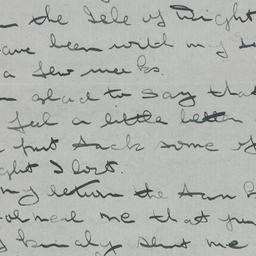 the Isle of Wight
have been with my
a few weeks.
glad to say that
feel a little better
put back some of
ght I lost.
my return the Ann
ormed me that you
kindly sent me